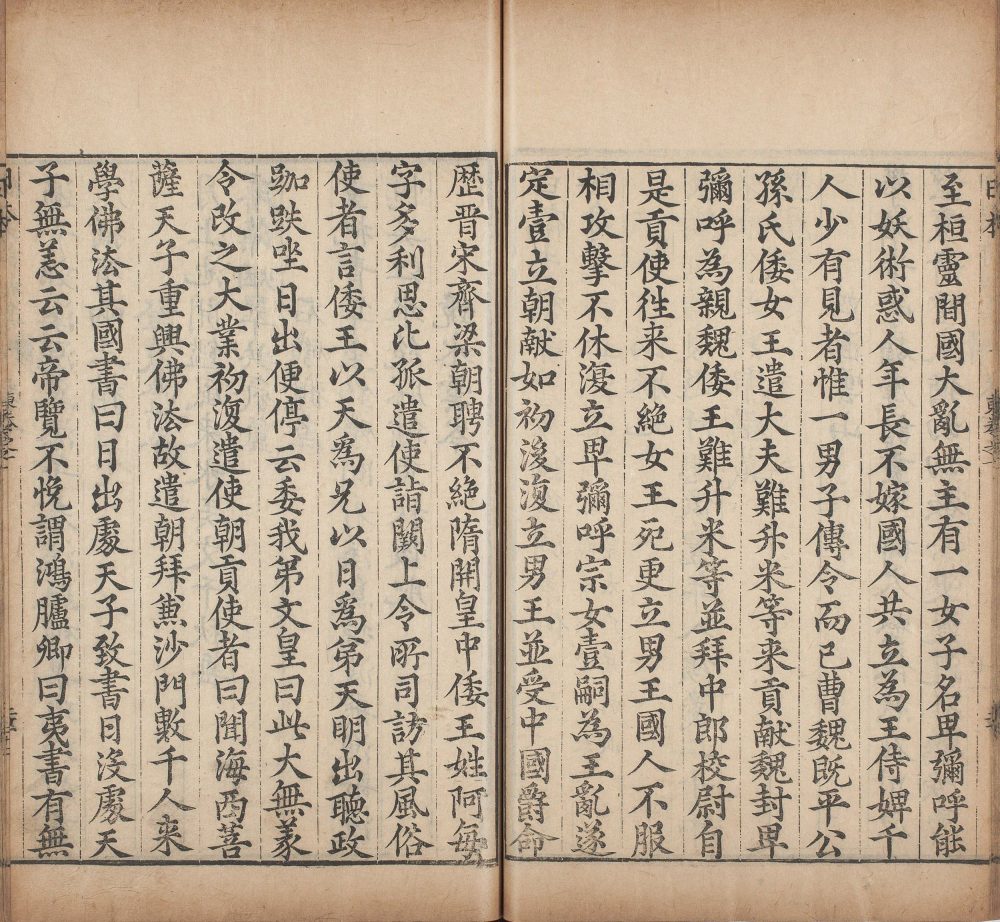 至桓靈間國大亂無主有一女子名卑彌呼能
以妖術惑人年長不嫁國人共立為王侍婢千
人少有見者惟一男子傳令而已曹魏既平公
孫氏倭女王遣大夫難升米等来貢献魏封卑
彌呼為親魏倭王難升米等並拜中郎校尉自
是貢使徃来不絶女王死更立男王國人不服
相攻擊不休復立卑彌呼宗女壹嗣為王亂遂
定壹立朝献如初後復立男王並受中國爵命
歴晋宋齊梁朝聘不絶隋開皇中倭王姓阿每
字多利思比孤遣使詣闕上令所司訪其風俗
使者言倭王以天爲兄以日爲弟天明出聴政
跏趺坐日出便停云委我弟文皇曰此大無義
令改之大業初復遣使朝貢使者曰聞海西菩
薩天子重興佛法故遣朝拜兼沙門數千人来
學佛法其國書曰日出處天子致書日沒處天
子無恙云云帝覽不悅謂鴻臚卿曰夷書有無